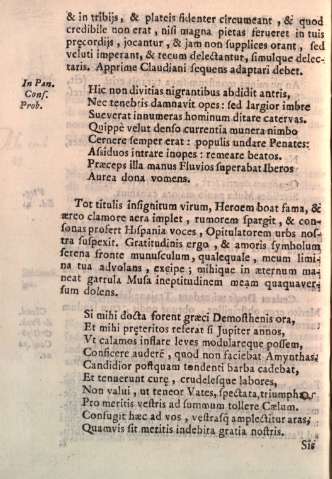 & in tribijs, & plateis fidenter circumeant, & quod
credibile non erat, nisi magna pietas ferueret in tuis
pręcordijs, jocantur, & jam non supplices orant, sed
veluti imperant, & tecum delectantur, simulque delec-
taris. Apprime Claudiani sequens adaptari debet.
In Pan.
Cons.
Prob.
Hic non divitias nigrantibus abdidit antris,
Nec tenebris damnavit opes: sed largior imbre
Sueverat innumeras hominum ditare catervas.
Quippè velut denso currentia munera nimbo
Cernere semper erat: populis undare Penates:
Assiduos intrare inopes: remeare beatos.
Præceps illa manus Fluvios superabat Iberos
Aurea dona vomens.
Tot titulis insignitum virum, Heroem boat fama, &
æreo clamore aera implet, rumorem spargit, & con-
sonas profert Hispania voces, Opitulatorem urbs nos-
tra suspexit. Gratitudinis ergo, & amoris symbolum
serena fronte munusculum, qualequale, meum limi-
na tua advolans, excipe; mihique in æternum ma-
neat garrula Musa ineptitudinem meam quaquaver-
sum dolens.
Si mihi docta forent græci Demosthenis ora,
Et mihi pręteritos referat si Jupiter annos,
Vt calamos inflare leves modulareque possem,
Conficere auderẽ, quod non faciebat Amynthas:
Candidior postquam tondenti barba cadebat,
Et tenuerunt curę, crudelesque labores,
Non valui, ut teneor Vates, spectata, triumphos
Pro meritis vestris ad summum tollere Cælum.
Confugit hæc ad vos, vestrasq́ amplectitur aras,
Quamvis sit meritis indebita gratia nostris.
Sis